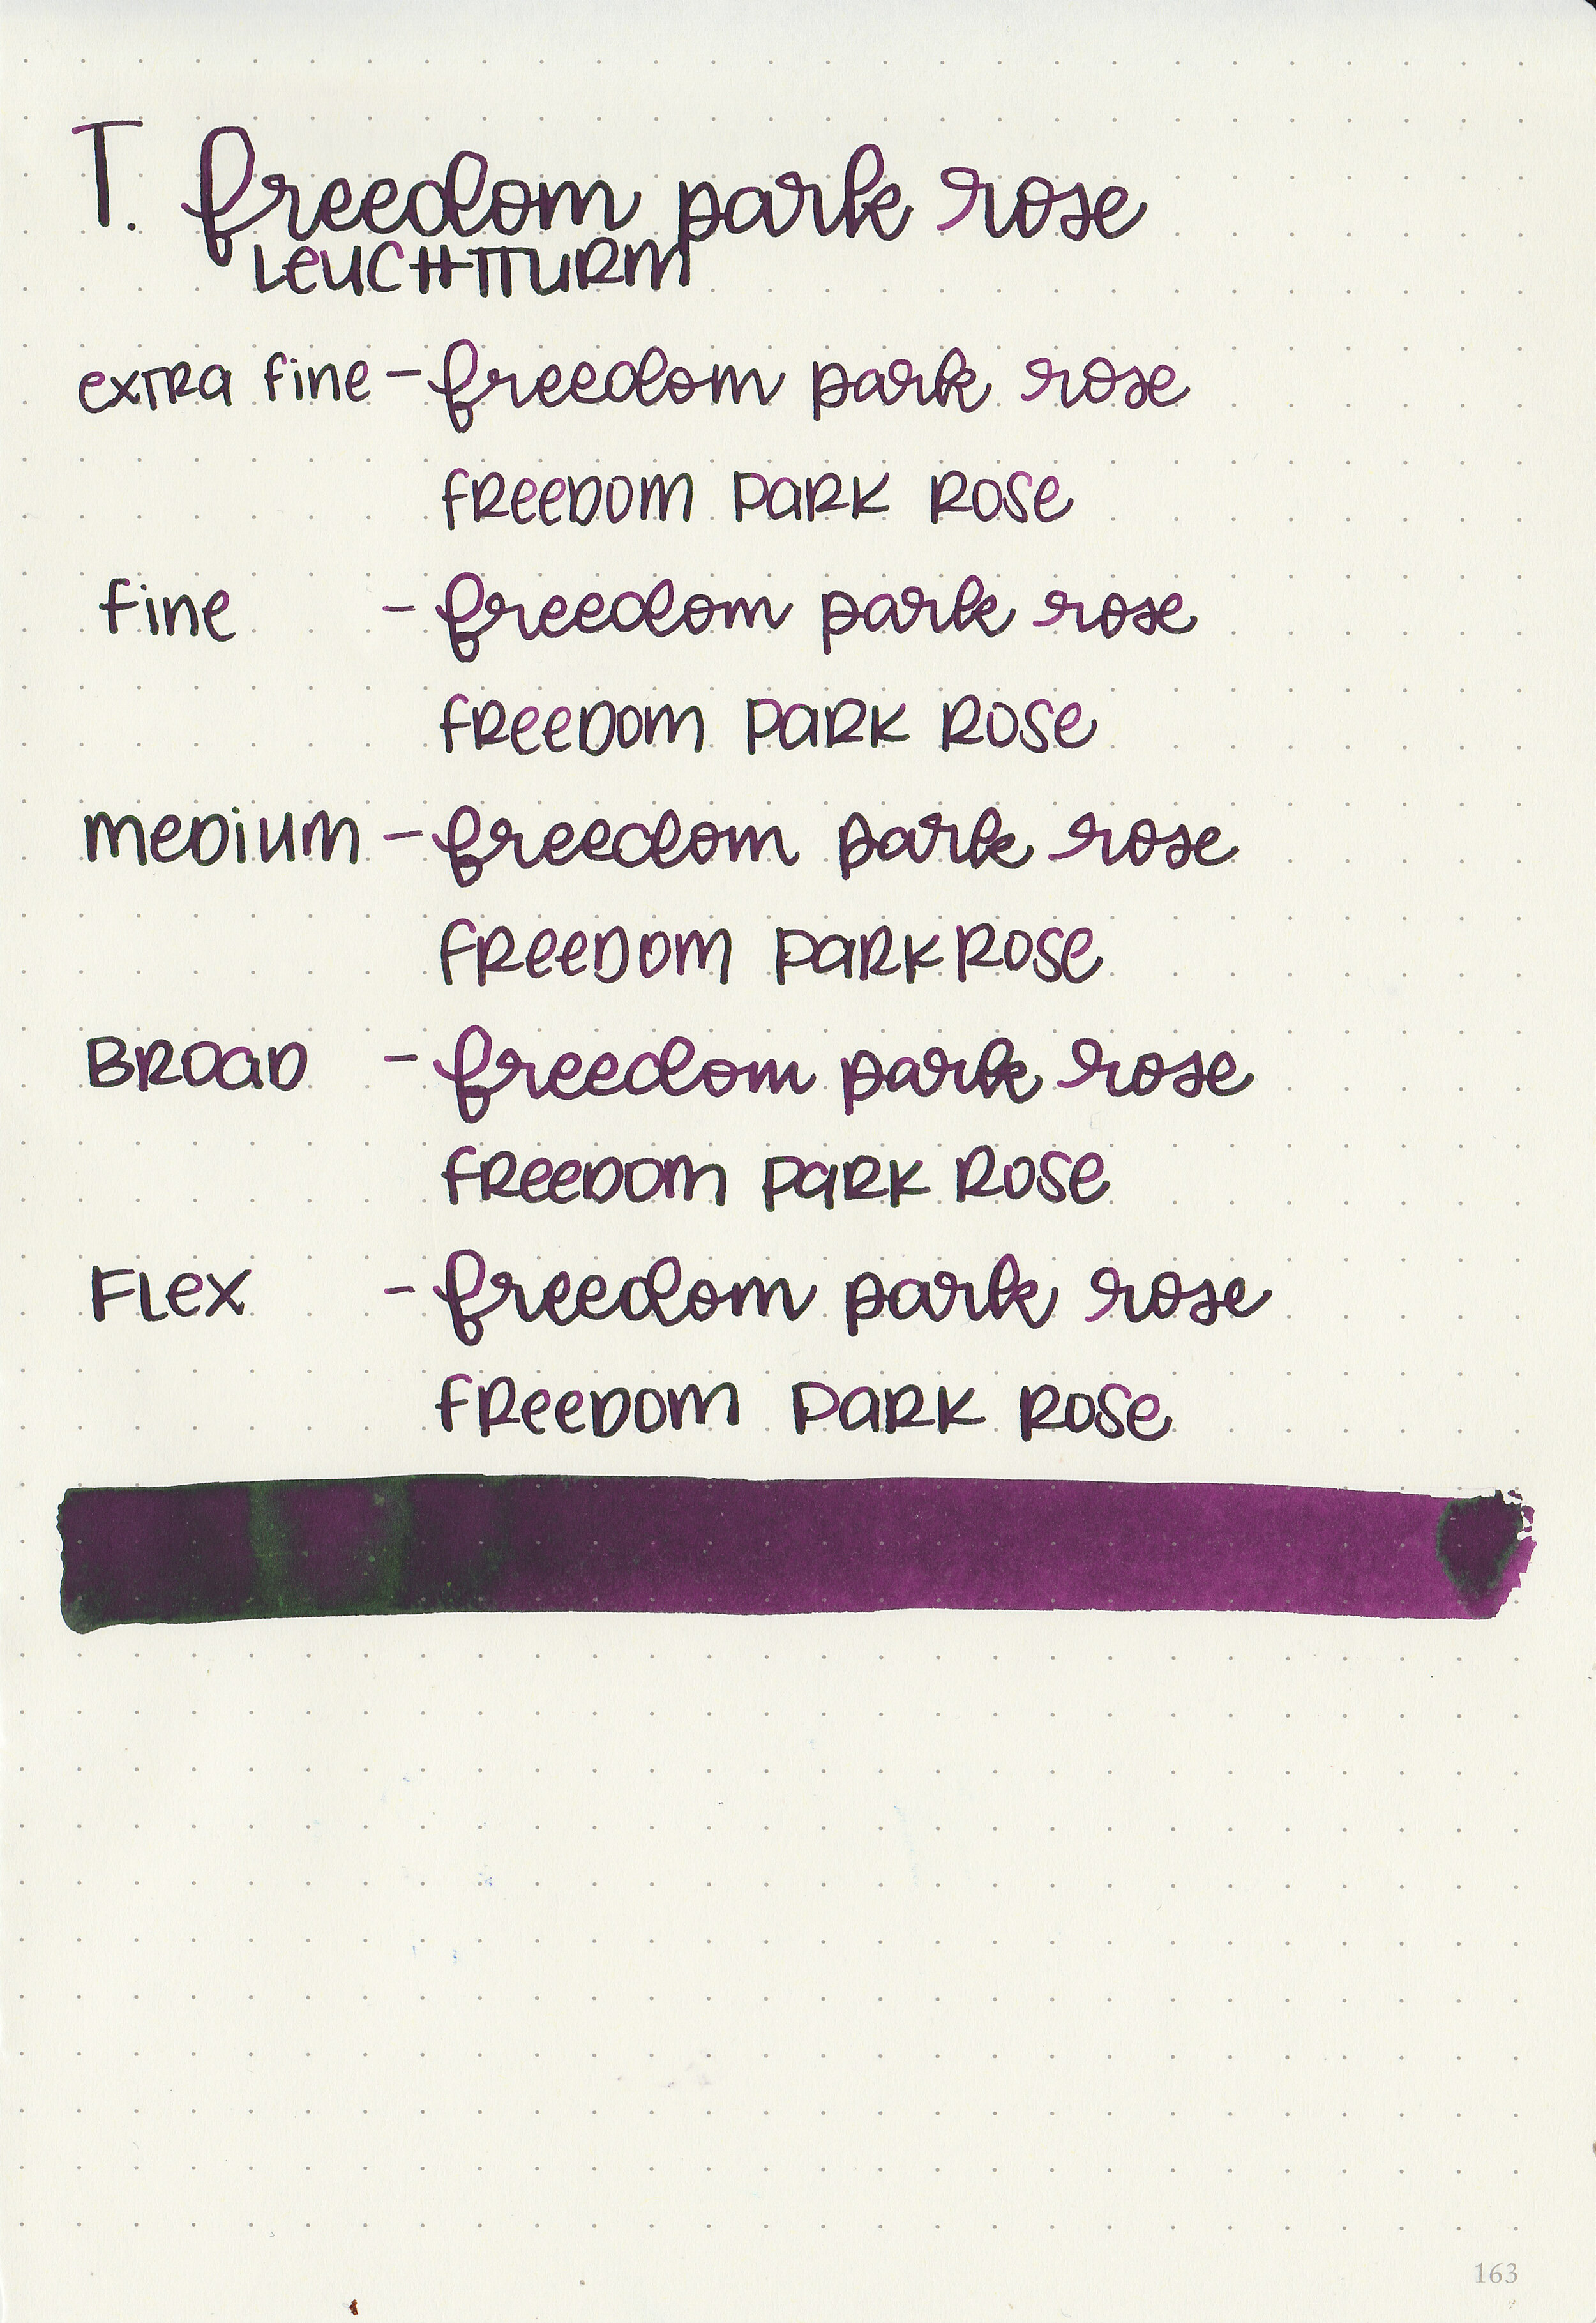 T. freedom park rose
LEUCHTTURM
extra fine - freedom park rose
freedom park rose
fine - freedom park rose
freedom park rose
medium - freedom park rose
freedom park rose
Broad - freedom park rose
freedom park rose
Flex - freedom park rose
freedom park rose
163